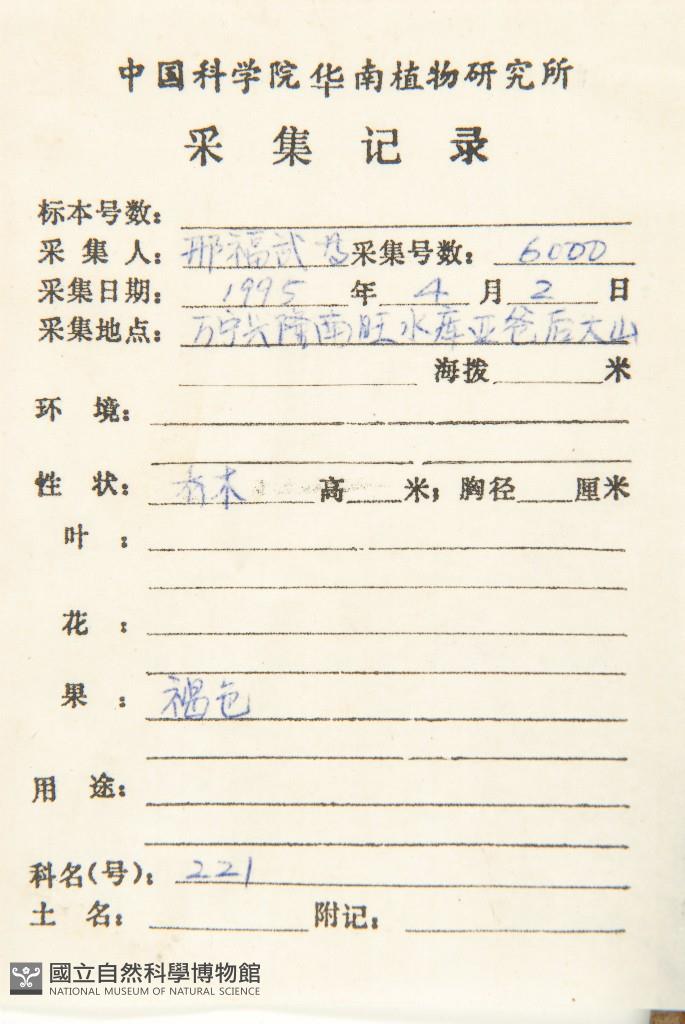 中国科学院华南植物研究所
采集记录
标本号数:
采集人: 邢福武 等 采集号数: 6000
采集日期: 1995 年 4 月 2 日
采集地点: 万宁兴隆南旺水库亚爸后大山
海拨 米
环境:
性状: 乔木 高 米; 胸径 厘米
叶:
花:
果: 褐色
用途:
科名(号): 221
土名: 附记:
國立自然科學博物館
NATIONAL MUSEUM OF NATURAL SCIENCE